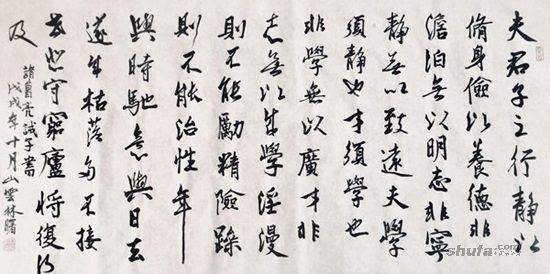 夫君子之行靜以
脩身儉以養德非
澹泊無以明志非寧
靜無以致遠夫學
須靜也才須學也
非學無以廣才非
志無以成學淫漫
則不能勵精險躁
則不能治性年
與時馳意與日去
遂成枯落多不接
世悲守窮廬將復何
及
諸葛亮誡子書
戊戌年十月山雲林
shufa